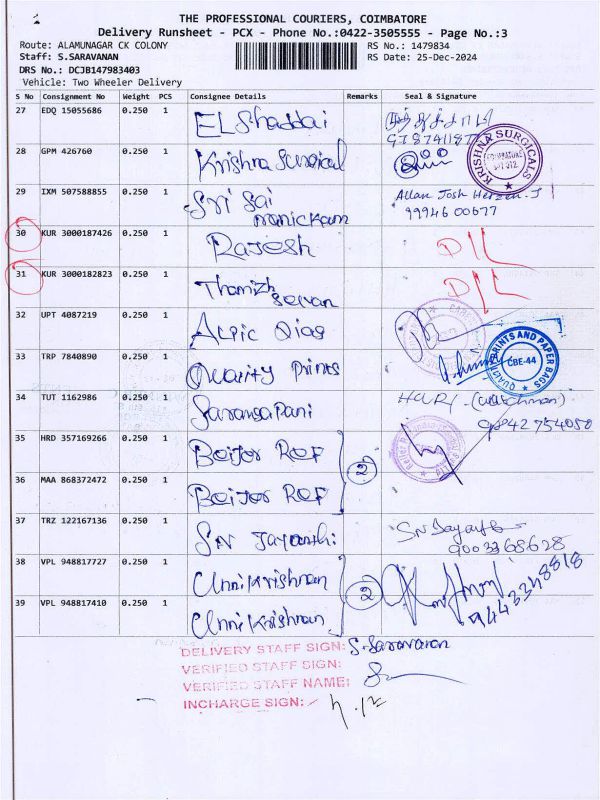 THE PROFESSIONAL COURIERS, COIMBATORE
Delivery Runsheet - PCX - Phone No.:0422-3505555 - Page No.:3
Route: ALAMUNAGAR CK COLONY RS No.: 1479834
Staff: S.SARAVANAN RS Date: 25-Dec-2024
DRS No.: DCJB147983403
Vehicle: Two Wheeler Delivery
S No Consignment No Weight PCS Consignee Details Remarks Seal & Signature
27 EDQ 15055686 0.250 1 EL Shaddai
28 GPM 426760 0.250 1 Krishna Surgical
KRISHNA SURGICALS
29 IXM 507588855 0.250 1 Sri Sai manickam Allan Josh Herzen. J
99946 00677
30 KUR 3000187426 0.250 1 Rajesh D/L
31 KUR 3000182823 0.250 1 Thamizh Selvan D/L
32 UPT 4087219 0.250 1
33 TRP 7840890 0.250 1 Quality Prints
PRINTS AND PAPER BAGS
CBE-44
34 TUT 1162986 0.250 1 Sarangapani
98427 54050
35 HRD 357169266 0.250 1 Beijer REF
2
36 MAA 868372472 0.250 1 Beijer REF
37 TRZ 122167136 0.250 1 SN Jayanthi
9003368628
38 VPL 948817727 0.250 1 Unnikrishnan
2
9443348818
39 VPL 948817410 0.250 1 Unnikrishnan
DELIVERY STAFF SIGN: S. Saravanan
VERIFIED STAFF SIGN:
VERIFIED STAFF NAME:
INCHARGE SIGN: